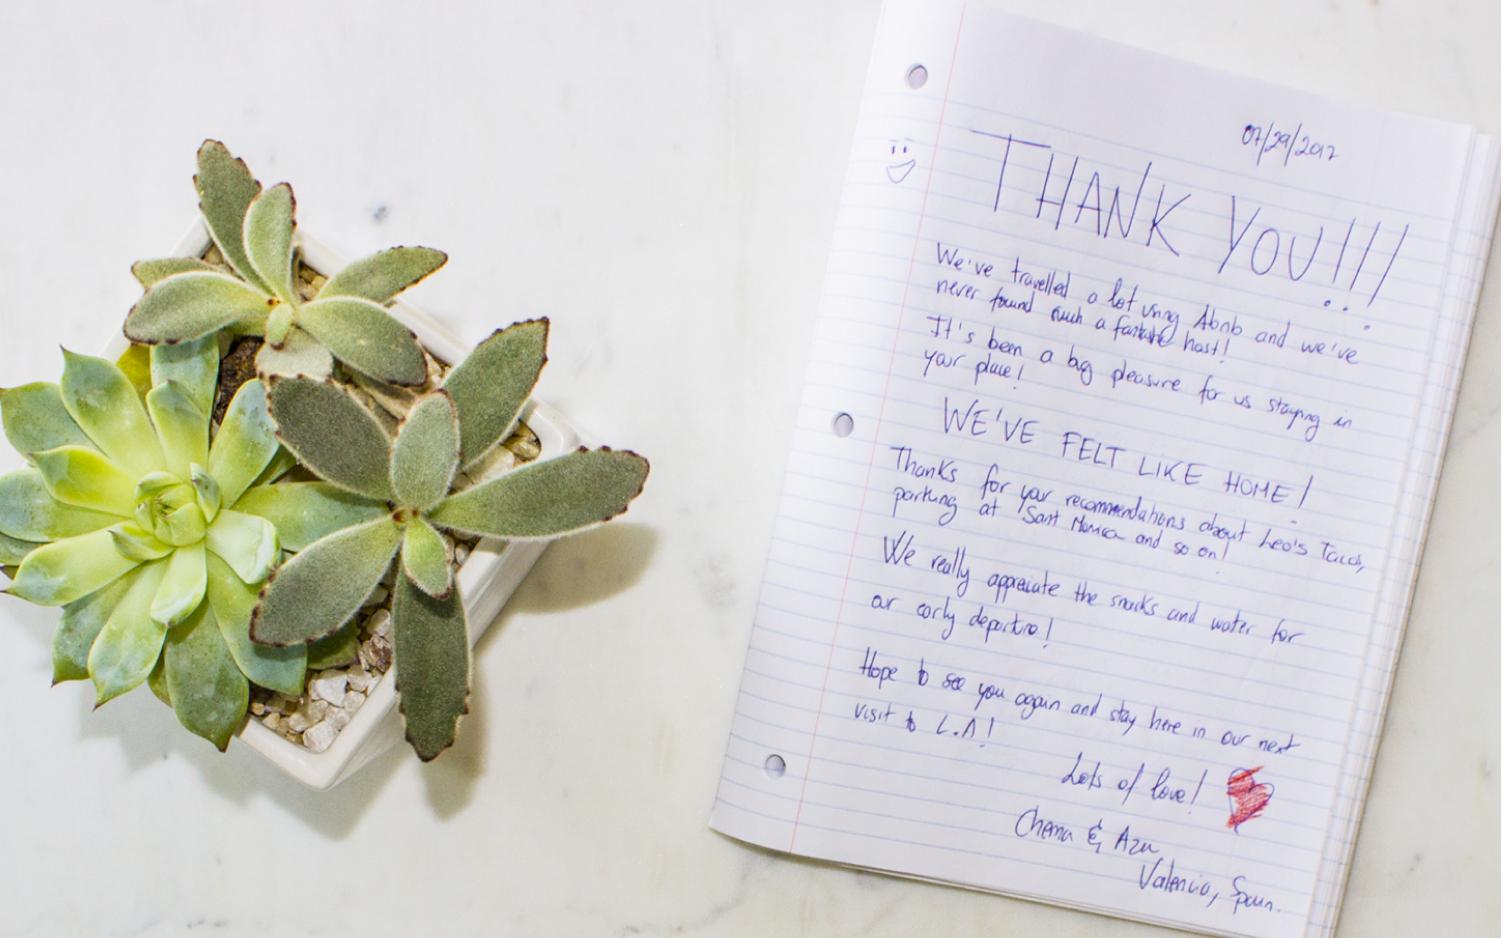 07/29/2017
THANK YOU!!!
We've travelled a lot using Abnb and we've
never found such a fantastic host!
It's been a big pleasure for us staying in
your place!
WE'VE FELT LIKE HOME!
Thanks for your recommendations about Leo's Tacos,
parking at Sant Monica and so on!
We really appreciate the snacks and water for
our early departure!
Hope to see you again and stay here in our next
visit to L.A!
Lots of love!
Chema & Azu
Valencia, Spain.